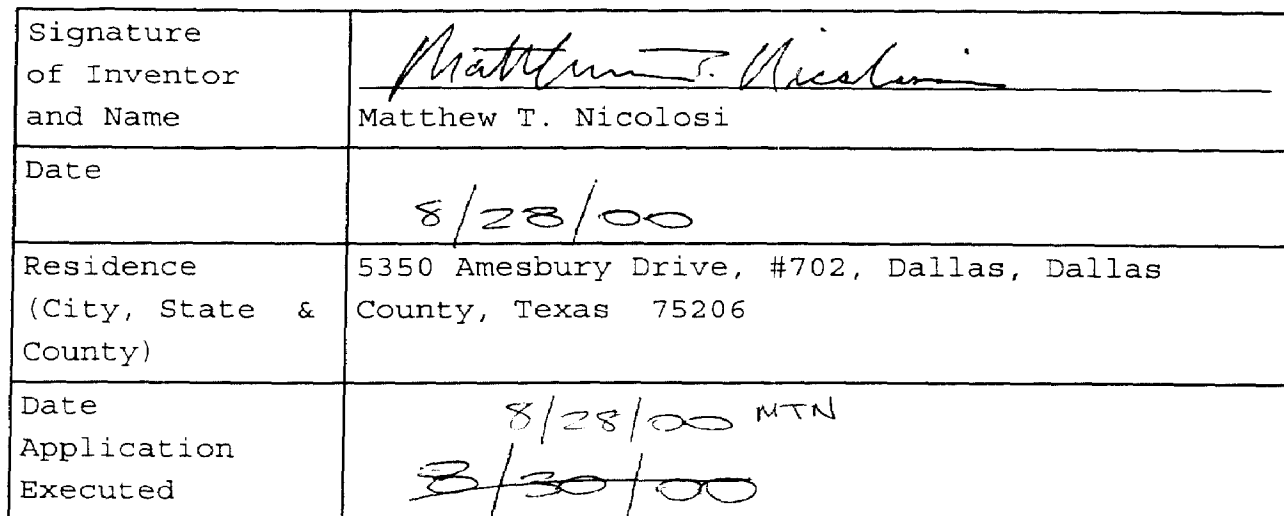 Signature
of Inventor
and Name
Matthew T. Nicolosi
Matthew T. Nicolosi
Date
8/28/00
Residence
(City, State & County)
5350 Amesbury Drive, #702, Dallas, Dallas
County, Texas 75206
Date
Application
Executed
8/28/00 MTN
8/30/00